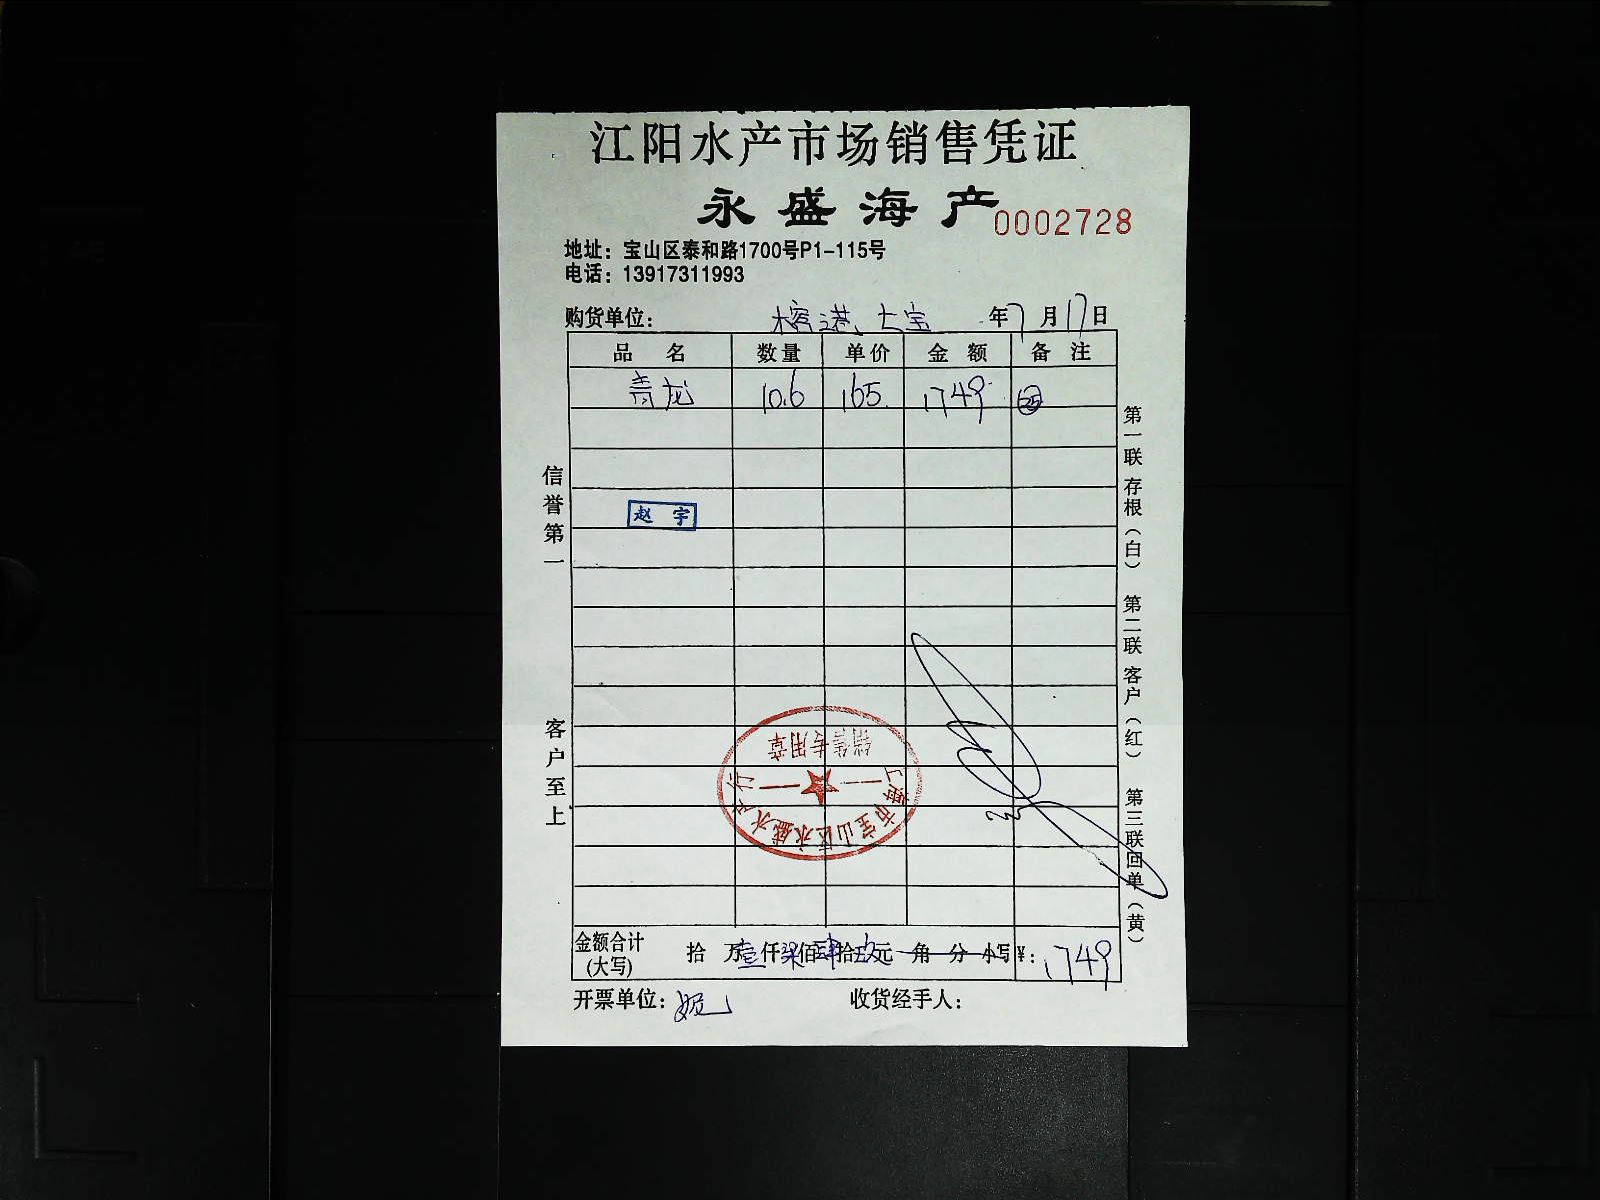 江阳水产市场销售凭证
永盛海产
0002728
地址：宝山区泰和路1700号P1-115号
电话：13917311993
购货单位： 榕港 大宝 年7月17日
品名 数量 单价 金额 备注
青龙 10.6 165 1749
赵宇
信誉第一
客户至上
第一联 存根（白） 第二联 客户（红） 第三联 回单（黄）
销售专用章
市宝山区永盛水产行
金额合计(大写) 拾万壹仟柒佰肆拾玖元角分 小写¥：1749
开票单位：
收货经手人：